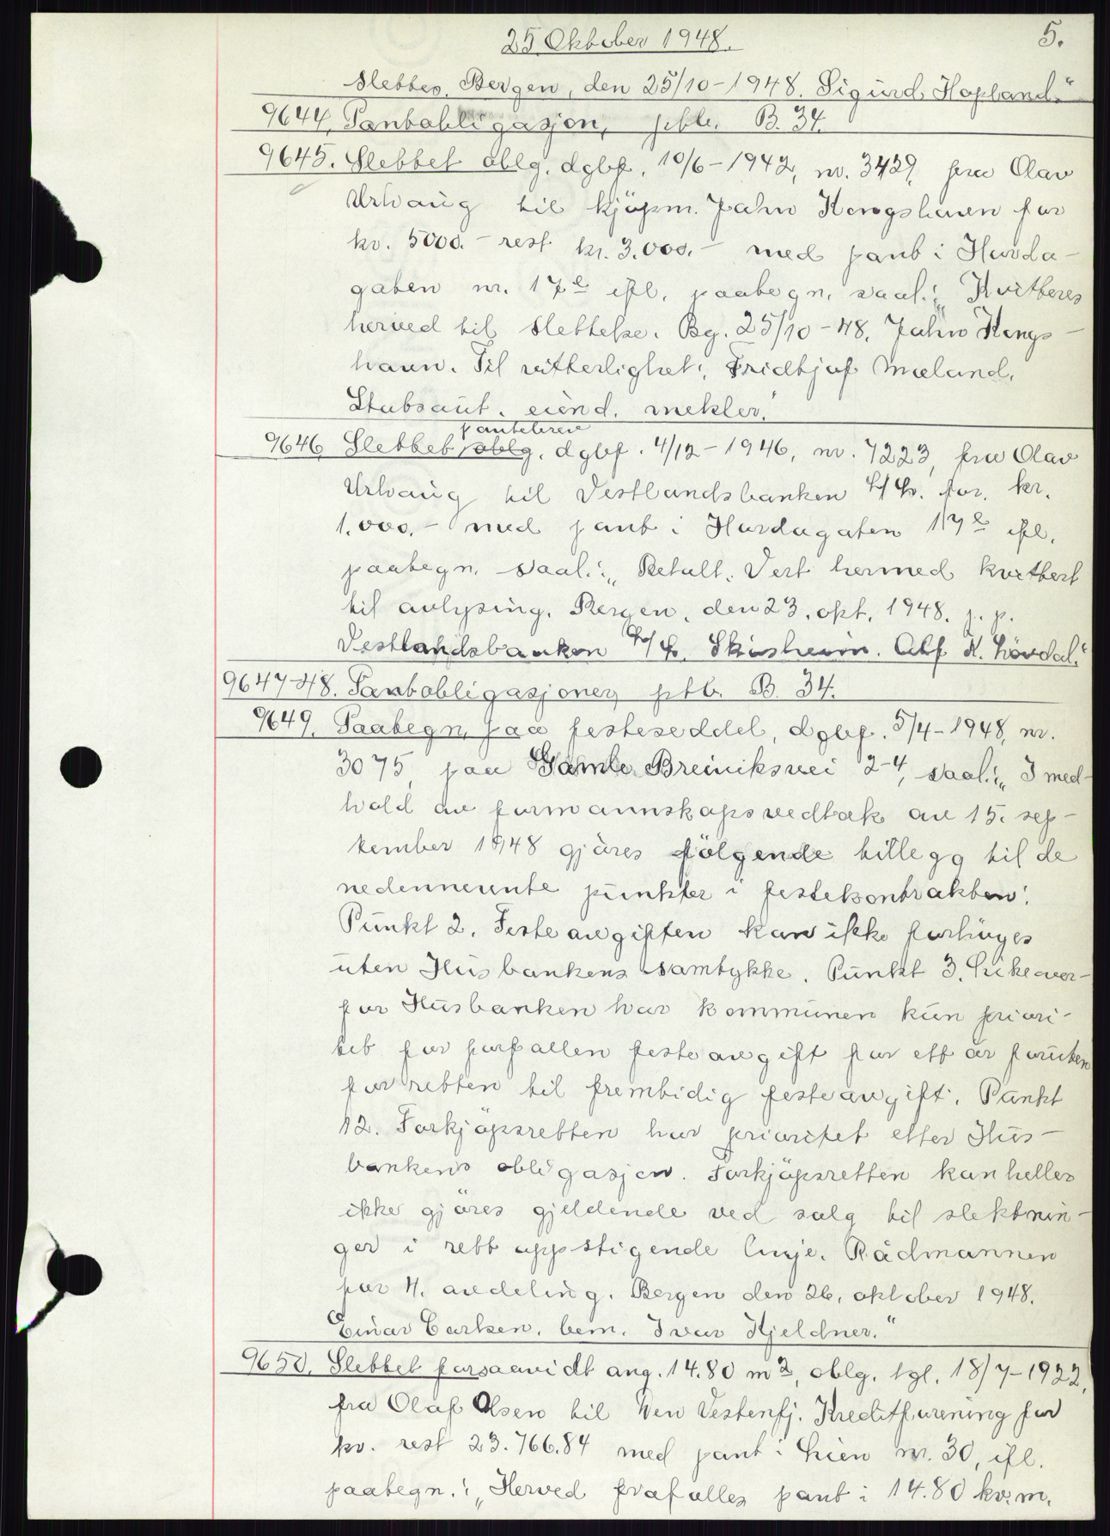 25 Oktober 1948.
5.
slettes. Bergen, den 25/10-1948. Sigurd Hopland."
9644. Pantobligasjon, ptb. B. 34.
9645. Slettet oblg. dgbf. 10/6-1942, nr. 3429, fra Olav
Urhaug til kjöpm. Jahn Kongshavn for
kr. 5000.- rest kr. 3.000.- med pant i Harda-
gaten nr. 17e ifl. paategn. saal.: "Kvitteres
herved til slettelse. Bg. 25/10-48. Jahn Kongs-
havn. Til vitterlighet: Fridtjof Mæland.
Statsaut. eiend. mekler."
pantebrev
9646. Slettet oblg. dgbf. 4/12-1946, nr. 7223, fra Olav
Urhaug til Vestlandsbanken L/L. for kr.
1.000.- med pant i Hardagaten 17e ifl.
paategn. saal.: "Betalt. Vert hermed kvittert
til avlysing. Bergen, den 23. okt. 1948. p. p.
Vestlandsbanken L/L. Skisheim. Alf K. Lövdal."
9647-48. Pantobligasjoner, ptb. B 34.
9649. Paategn. paa festeseddel, dgbf. 5/4-1948, nr.
3075, paa Gamle Breiviksvei 2-4, saal.: "I med-
hold av formannskapsvedtak av 15. sep-
tember 1948 gjöres fölgende tillegg til de
nedennevnte punkter i festekontrakten:
Punkt 2. Festeavgiften kan ikke forhöyes
uten Husbankens samtykke. Punkt 3. Likeover-
for Husbanken har kommunen kun priori-
tet for forfallen festeavgift for ett år foruten
for retten til fremtidig festeavgift. Punkt
12. Forkjöpsretten har prioritet etter Hus-
bankens obligasjon. Forkjöpsretten kan heller
ikke gjöres gjeldende ved salg til slektnin-
ger i rett oppstigende linje. Rådmannen
for 4. avdeling. Bergen den 26. oktober 1948.
Einar Carlsen. bem. Ivar Kjeldner."
9650. Slettet forsaavidt ang. 14.80 m2, oblg. tgl. 18/7-1922,
fra Olaf Olsen til Den Vestenfj. Kreditforening for
kr. rest 23.766.84 med pant i Lien nr. 30, ifl.
paategn.: "Herved frafalles pant i 14.80 kv.m.